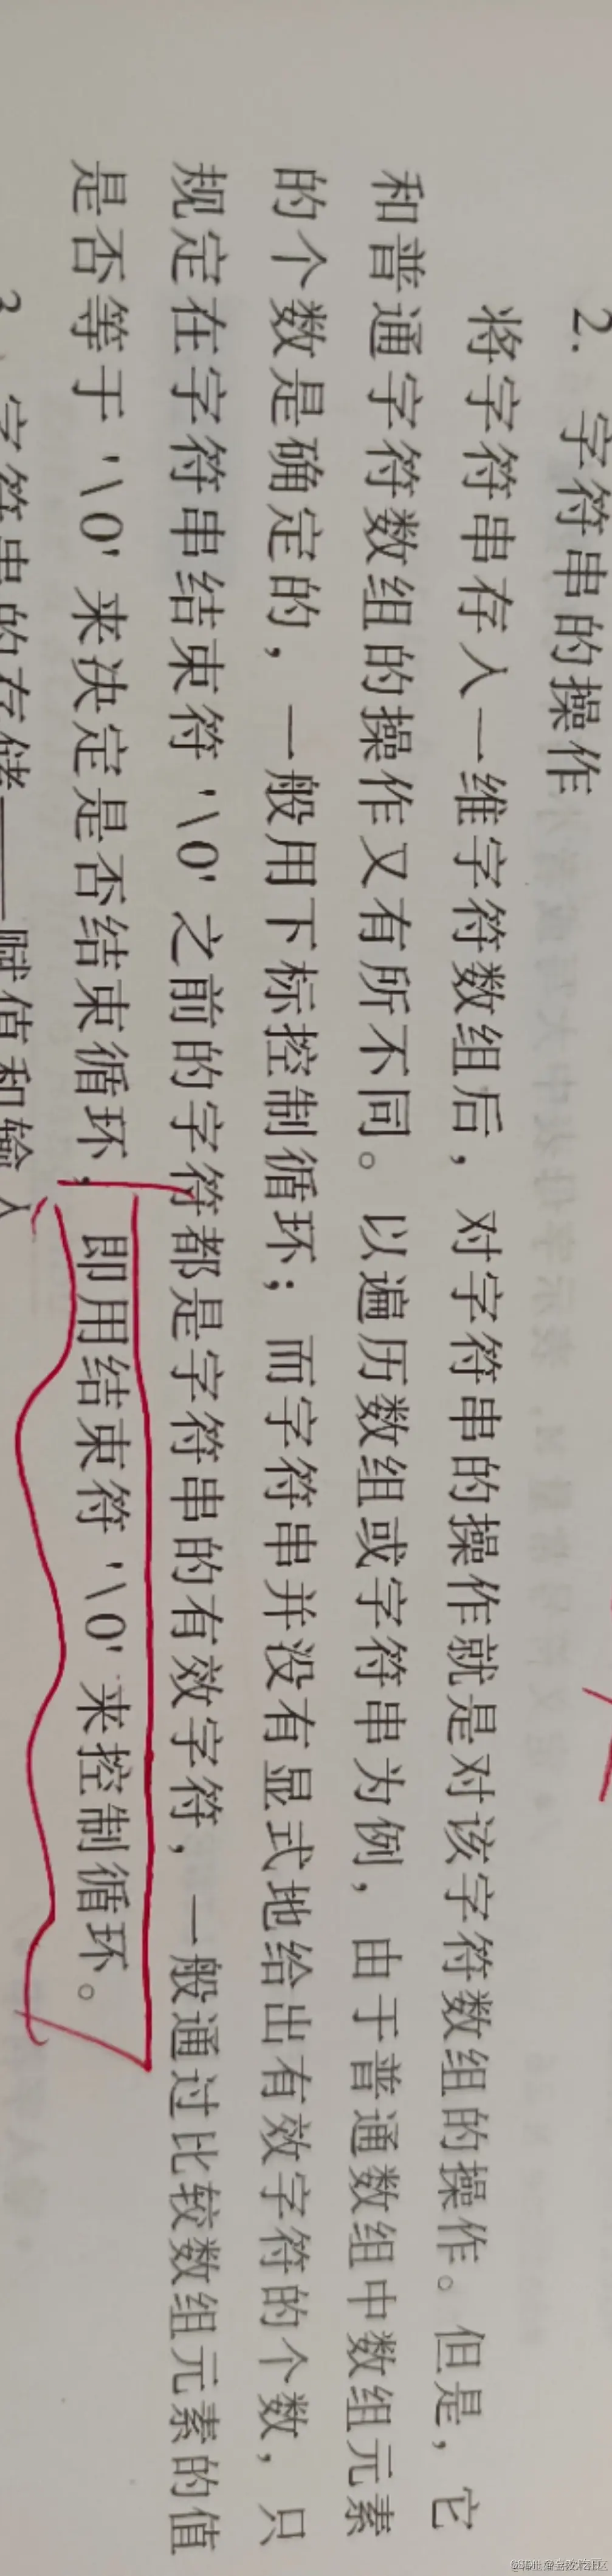 2. 字符串的操作
将字符串存入一维字符数组后，对字符串的操作就是对该字符数组的操作。但是，它
和普通字符数组的操作又有所不同。以遍历数组或字符串为例，由于普通数组中数组元素
的个数是确定的，一般用下标控制循环；而字符串并没有显式地给出有效字符的个数，只
规定在字符串结束符 '\0' 之前的字符都是字符串的有效字符，一般通过比较数组元素的值
是否等于 '\0' 来决定是否结束循环，即用结束符 '\0' 来控制循环。
3. 字符串的存储——赋值和输入